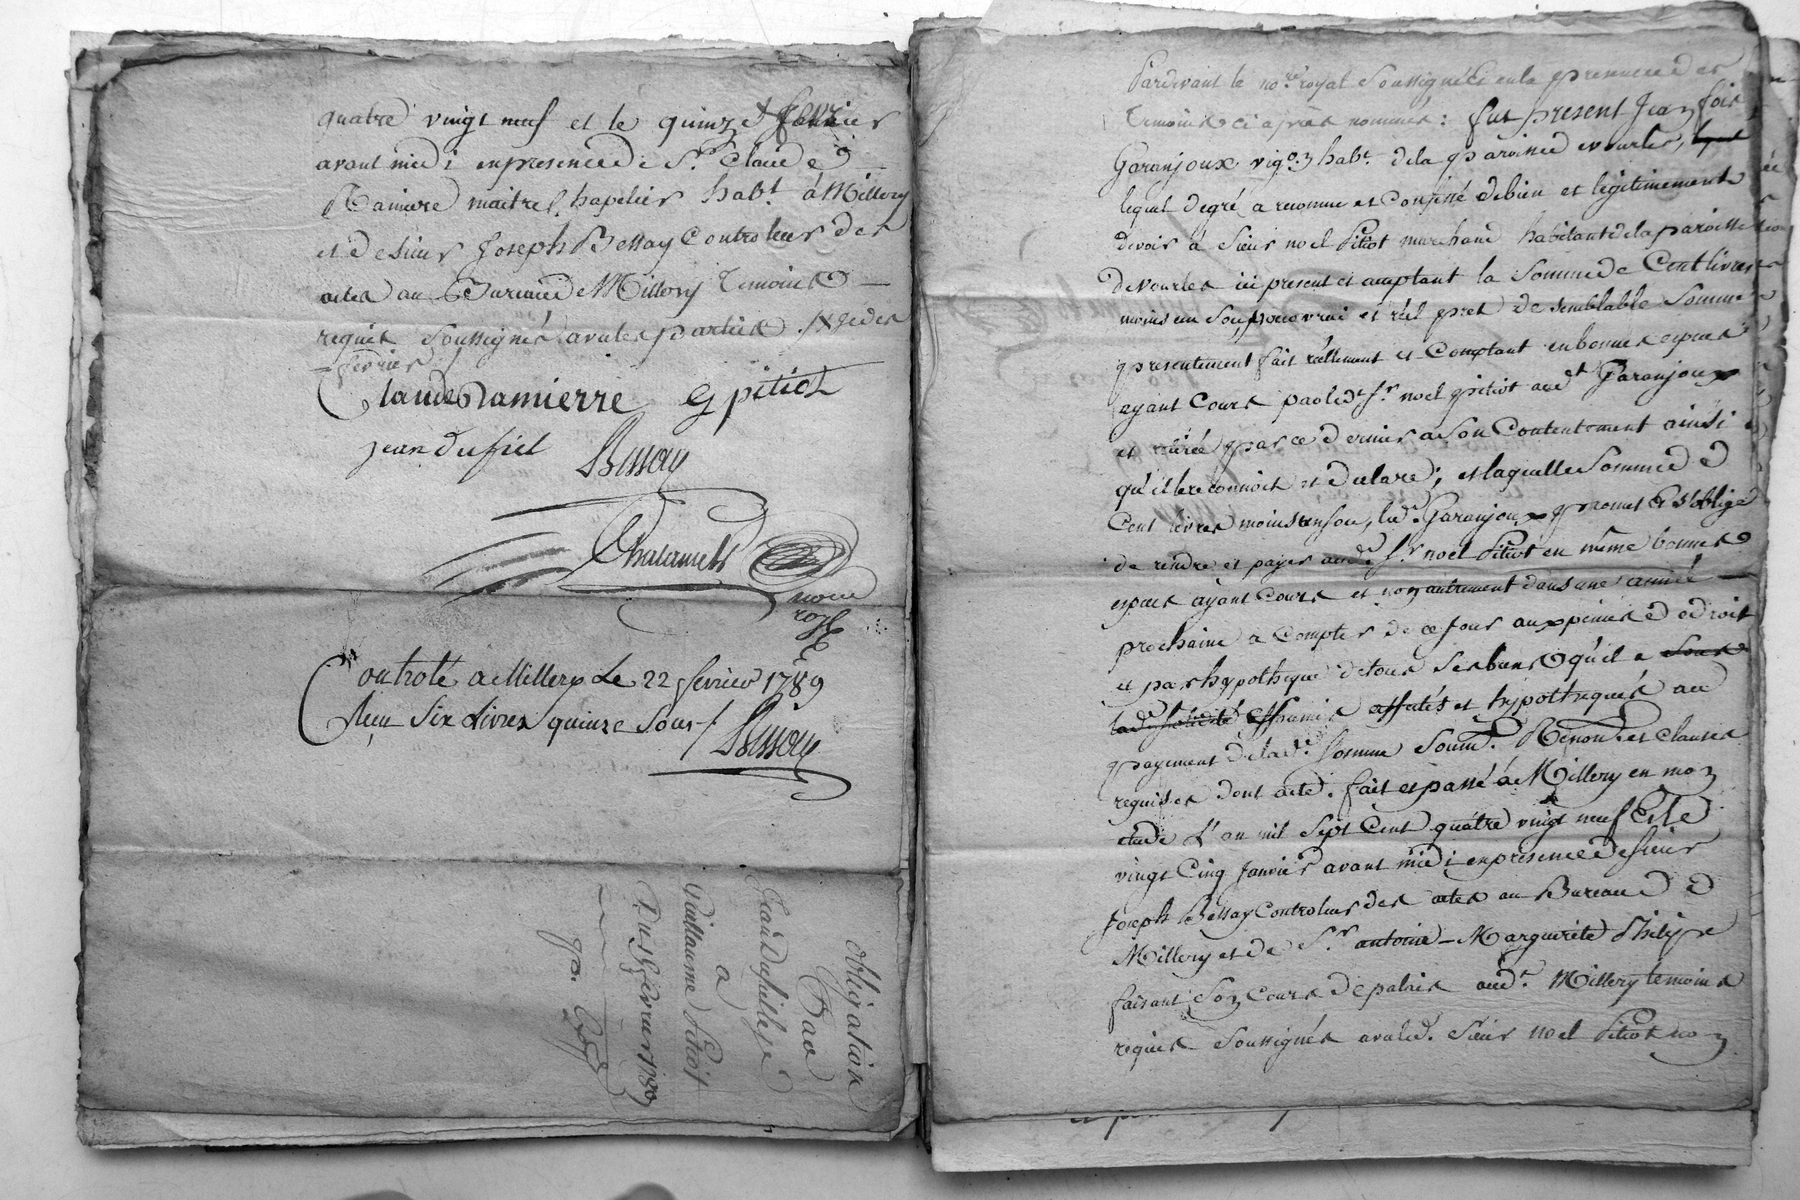 quatre vingt neuf et le quinze fevrier
avant midi en presence de Sr. Claude
Ramiere maitre Chapelier habt. à Millery
et de sieur Joseph Bessay Controleur des
actes au Bureau de Millery temoins
requis soussignés avec les parties
fevrier
Claude Ramierre G pitiot
jean dufiet Bessay
Chalamel
noire
royl
Controlé a Millery Le 22 fevrier 1789
Reçu Six Livres quinze sous Bessay
obligation
Jean
a
Guillaume Pitiot
Du 15 fevrier 1789
Pardevant le nore. royal soussigné et en la presence des
temoins ci après nommés : fut present Jean fois
Garanjoux vigon. habt. de la paroisse
lequel de gré a reconnu et confessé debien et legitimement
devoir à sieur noel Pitiot marchand habitant de la paroisse
de vourles ici present et acceptant la somme de Cent livres
moins un sou, pour vrai et réel pret de semblable somme
presentement fait réellement et Comptant en bonnes especes
ayant Cours par led. Sr. noel pitiot aud. Garanjoux
et retirée par ce dernier a son Contentement ainsi
qu'il le reconnoit et declare ; et laquelle somme de
Cent livres moins un sou, led. Garanjoux promet et s'oblige
de rendre et payer aud. Sr. noel Pitiot en même bonnes
especes ayant Cours et non autrement dans une année
prochaine a Compter de ce jour aux peines de droit
et par hypotheque de tous ses biens qu'il a
affectés et hypothequés au
payement de lad. somme soum. Renon. et clauses
requises dont acte. fait et passé à Millery en mon
etude L'an mil sept Cent quatre vingt neuf et le
vingt Cinq Janvier avant midi en presence de sieur
Joseph Bessay Controleur des actes au Bureau de
Millery et de Sr. antoine - Marguerite Philipe
faisant son Cours de palais aud. Millery temoins
requis soussignés avec led. sieur noel Pitiot non